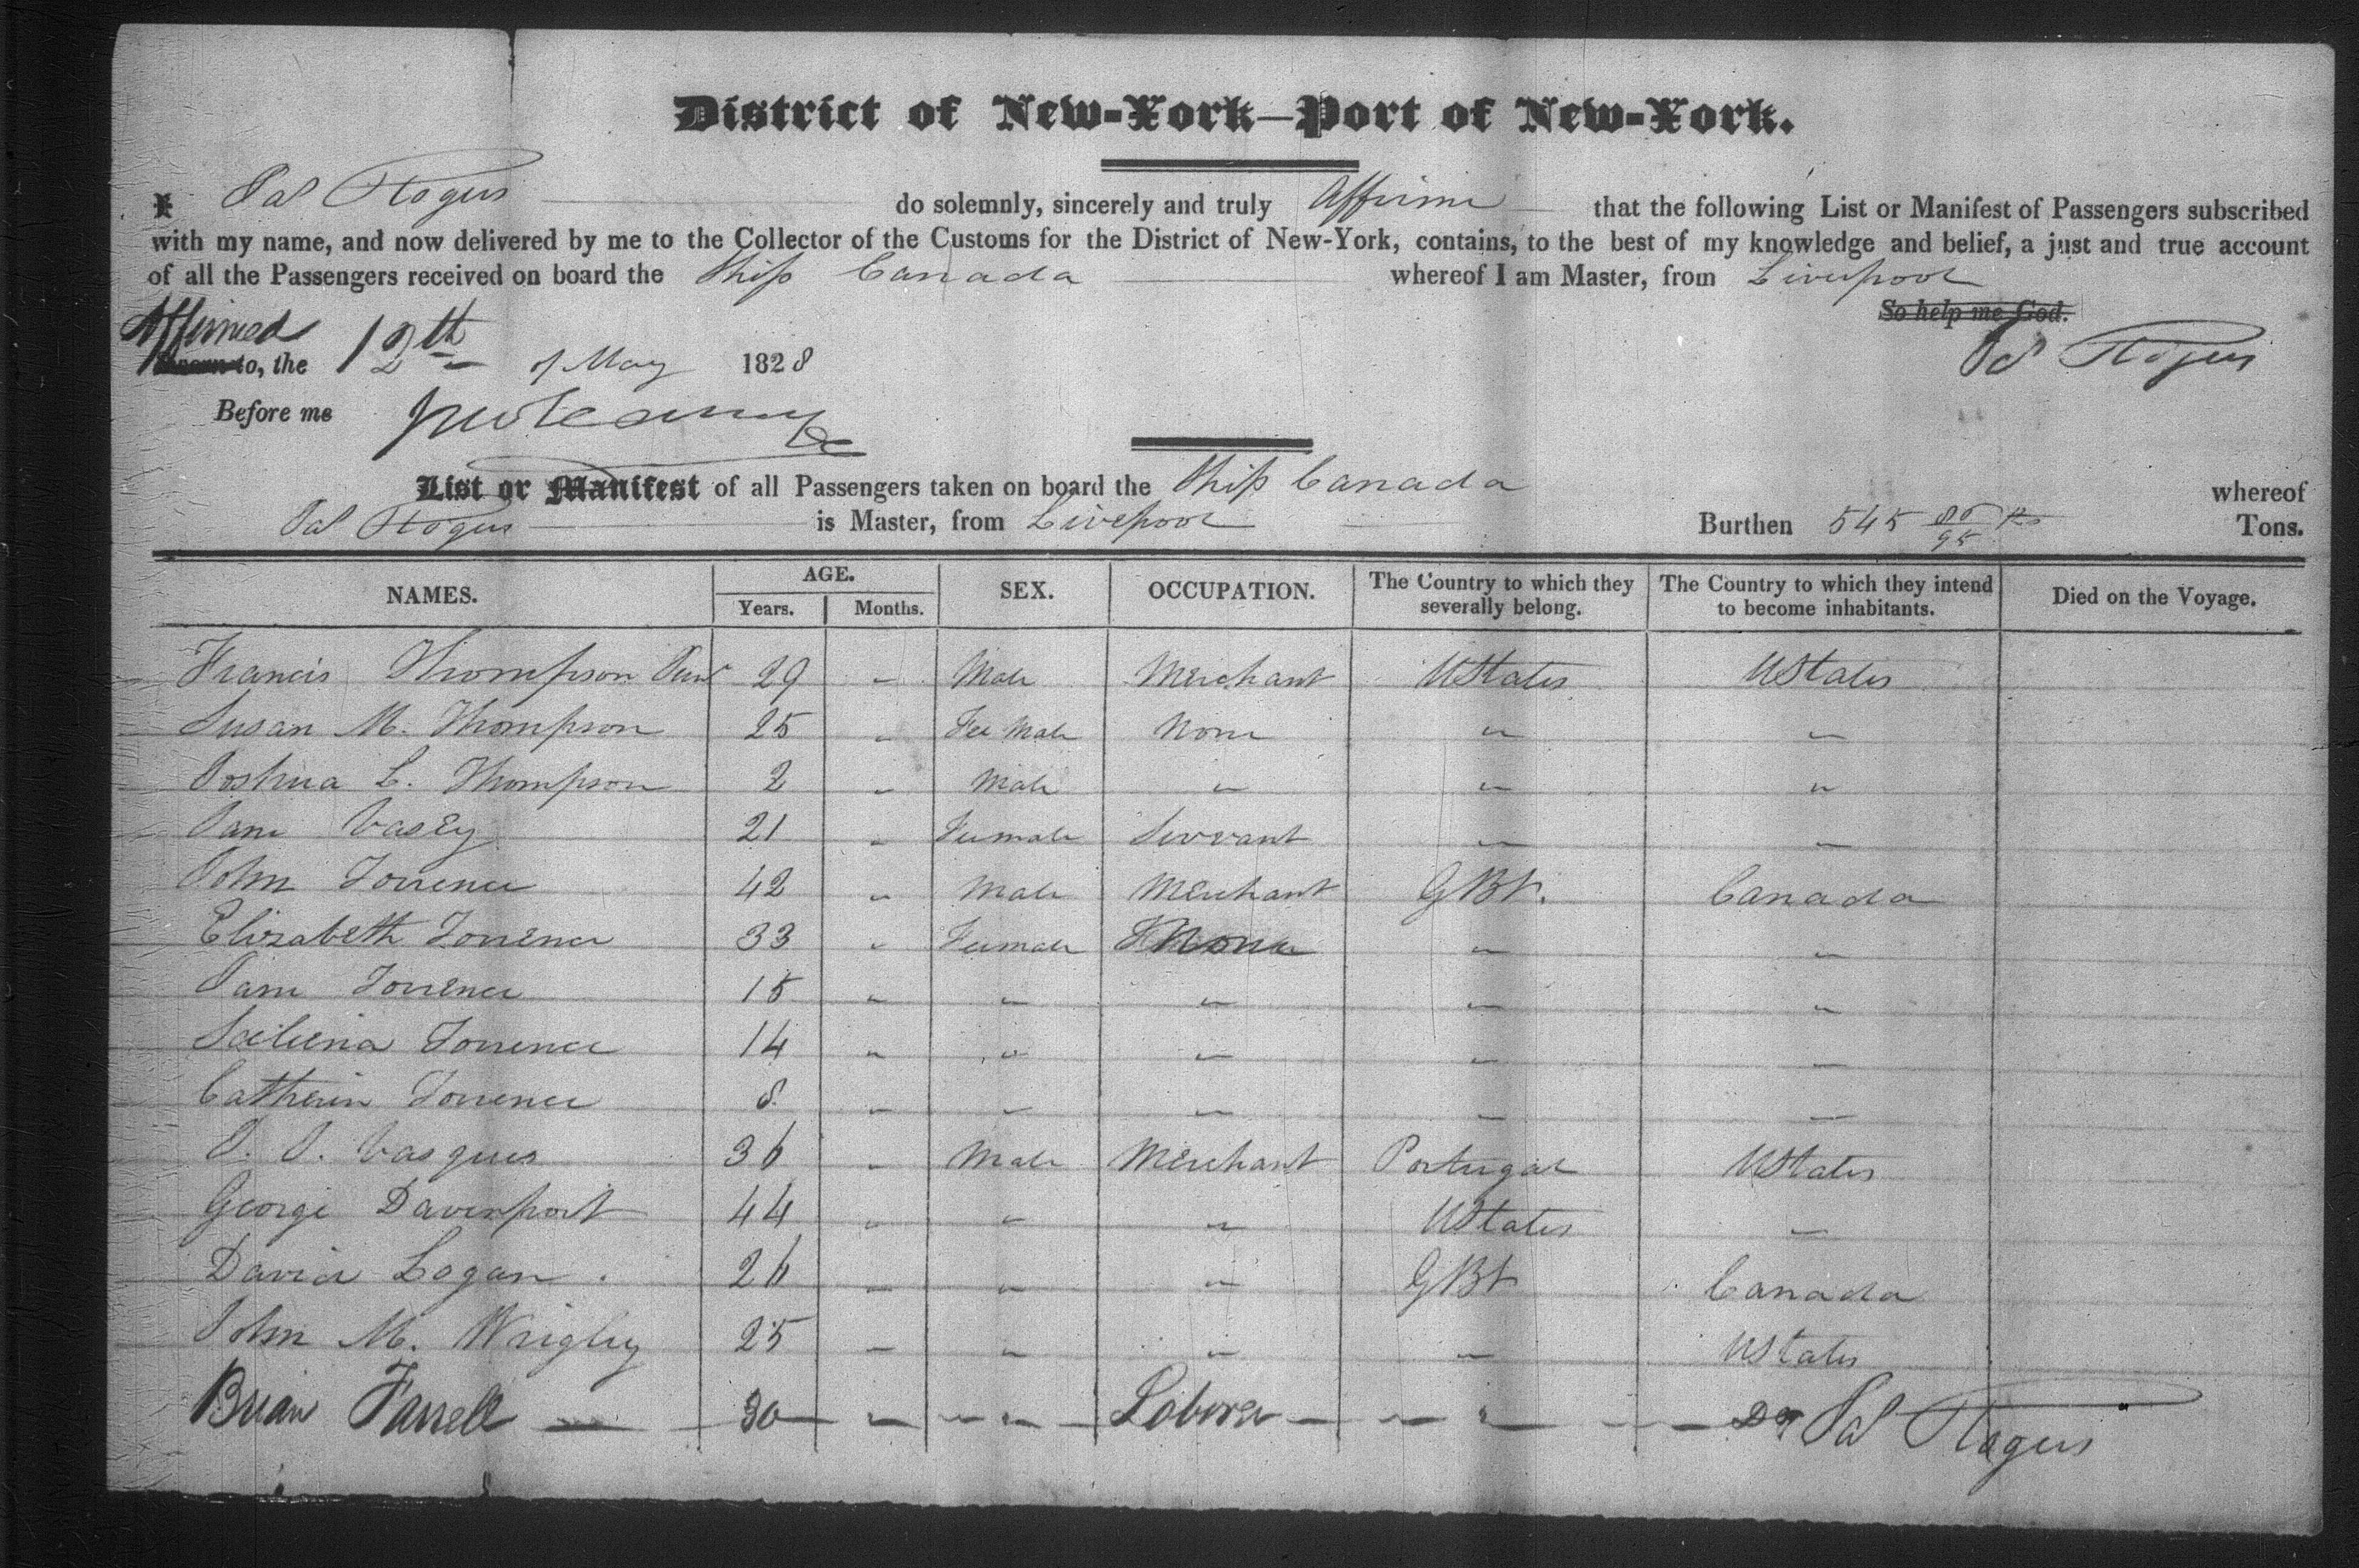 District of New-York—Port of New-York.
I Jas Rogers do solemnly, sincerely and truly Affirm that the following List or Manifest of Passengers subscribed
with my name, and now delivered by me to the Collector of the Customs for the District of New-York, contains, to the best of my knowledge and belief, a just and true account
of all the Passengers received on board the Ship Canada whereof I am Master, from Liverpool
So help me God.
Affirmed
Sworn to, the 12th of May 1828 Js Rogers
Before me
List or Manifest of all Passengers taken on board the Ship Canada whereof
Jas Rogers is Master, from Liverpool Burthen 545 Tons.
NAMES. AGE. Years. Months. SEX. OCCUPATION. The Country to which they severally belong. The Country to which they intend to become inhabitants. Died on the Voyage.
Francis Thompson Junr 29 " Male Merchant UStates UStates
Susan M. Thompson 25 " Fee Male None " "
Joshua L. Thompson 2 " Male " " "
Jane Casey 21 " Feemale Servant " "
John Torrence 42 " Male Merchant GBt. Canada
Elizabeth Torrence 33 " Feemale None " "
Jane Torrence 15 " " " " "
Torrence 14 " " " " "
Catherin Torrence 8 " " " " "
J. J. Vasques 36 " Male Merchant Portugal UStates
George Davenport 44 " " " UStates "
David Logan 26 " " " GBt Canada
John M. Wrigley 25 " " " " UStates
Brian Farrell 30 " " Laborer " Do Jas Rogers